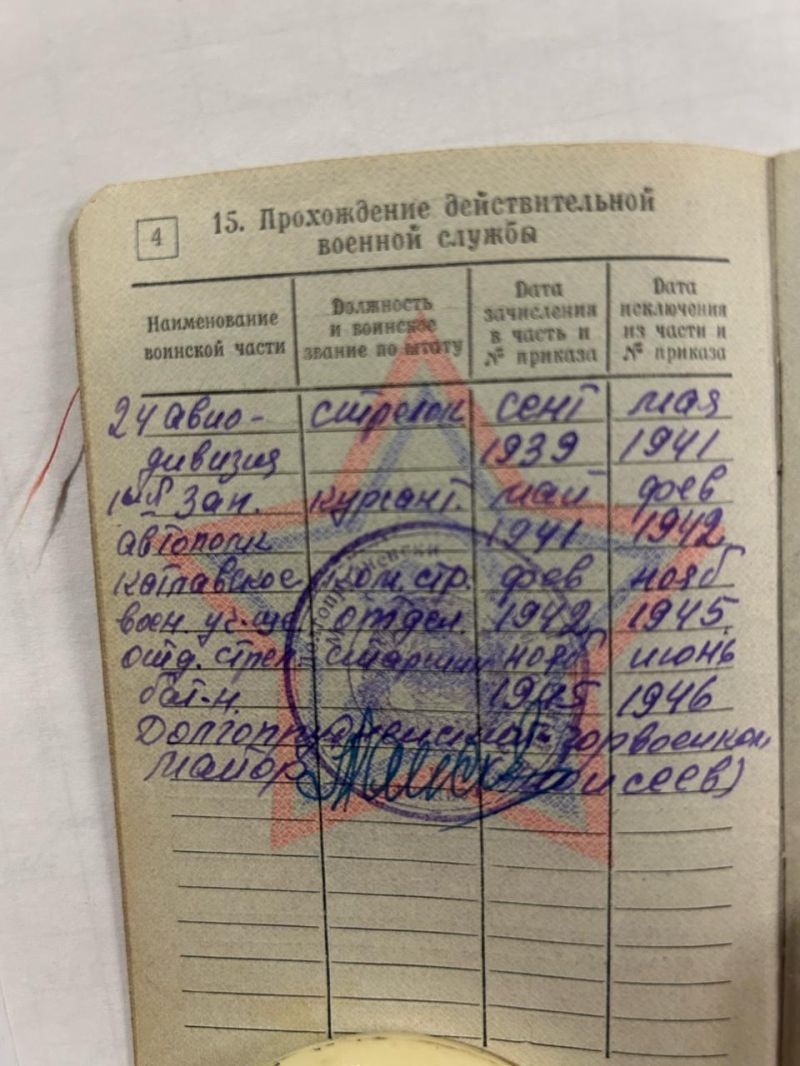 4
15. Прохождение действительной
военной службы
Наименование воинской части
Должность и воинское звание по штату
Дата зачисления в часть и № приказа
Дата исключения из части и № приказа
24 авио- стрелок сент мая
дивизия 1939 1941
зап. курсант. май фев
автополк 1941 1942
ком. стр. фев нояб
воен. уч-ще отдел. 1942 1945
отд. стрел. старшина нояб июнь
бат-н. 1945 1946
горвоенком
майор